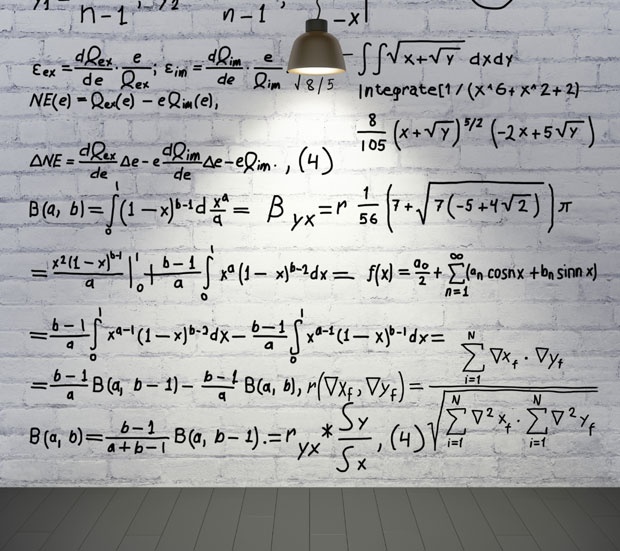 n-1 n-1 -x|
εex = dQex/de · e/Qex; εim = dQim/de · e/Qim
∫∫√x+√y dxdy
√8/5
NE(e) = Qex(e) - eQim(e),
Integrate[1/(x^6+x^2+2)
8/105 (x+√y)^5/2 (-2x+5√y)
ΔNE = dQex/de Δe - e dQim/de Δe - eQim. , (4)
B(a, b) = ∫₀¹(1-x)^b-1 d x^a/a = B yx = r 1/56 (7+√7(-5+4√2)) π
= x²(1-x)^b-1/a |₀¹ + b-1/a ∫₀¹ x^a(1-x)^b-2 dx = f(x) = a₀/2 + ∑ n=1 ∞ (an cosnx + bn sinn x)
= b-1/a ∫₀¹ x^a-1(1-x)^b-2 dx - b-1/a ∫₀¹ x^a-1(1-x)^b-1 dx =
= b-1/a B(a, b-1) - b-1/a B(a, b), r(∇xf, ∇yf) = ∑ i=1 N ∇xf · ∇yf / √∑ i=1 N ∇²xf · ∑ i=1 N ∇²yf
B(a, b) = b-1/a+b-1 B(a, b-1).= r yx * Sy/Sx , (4)